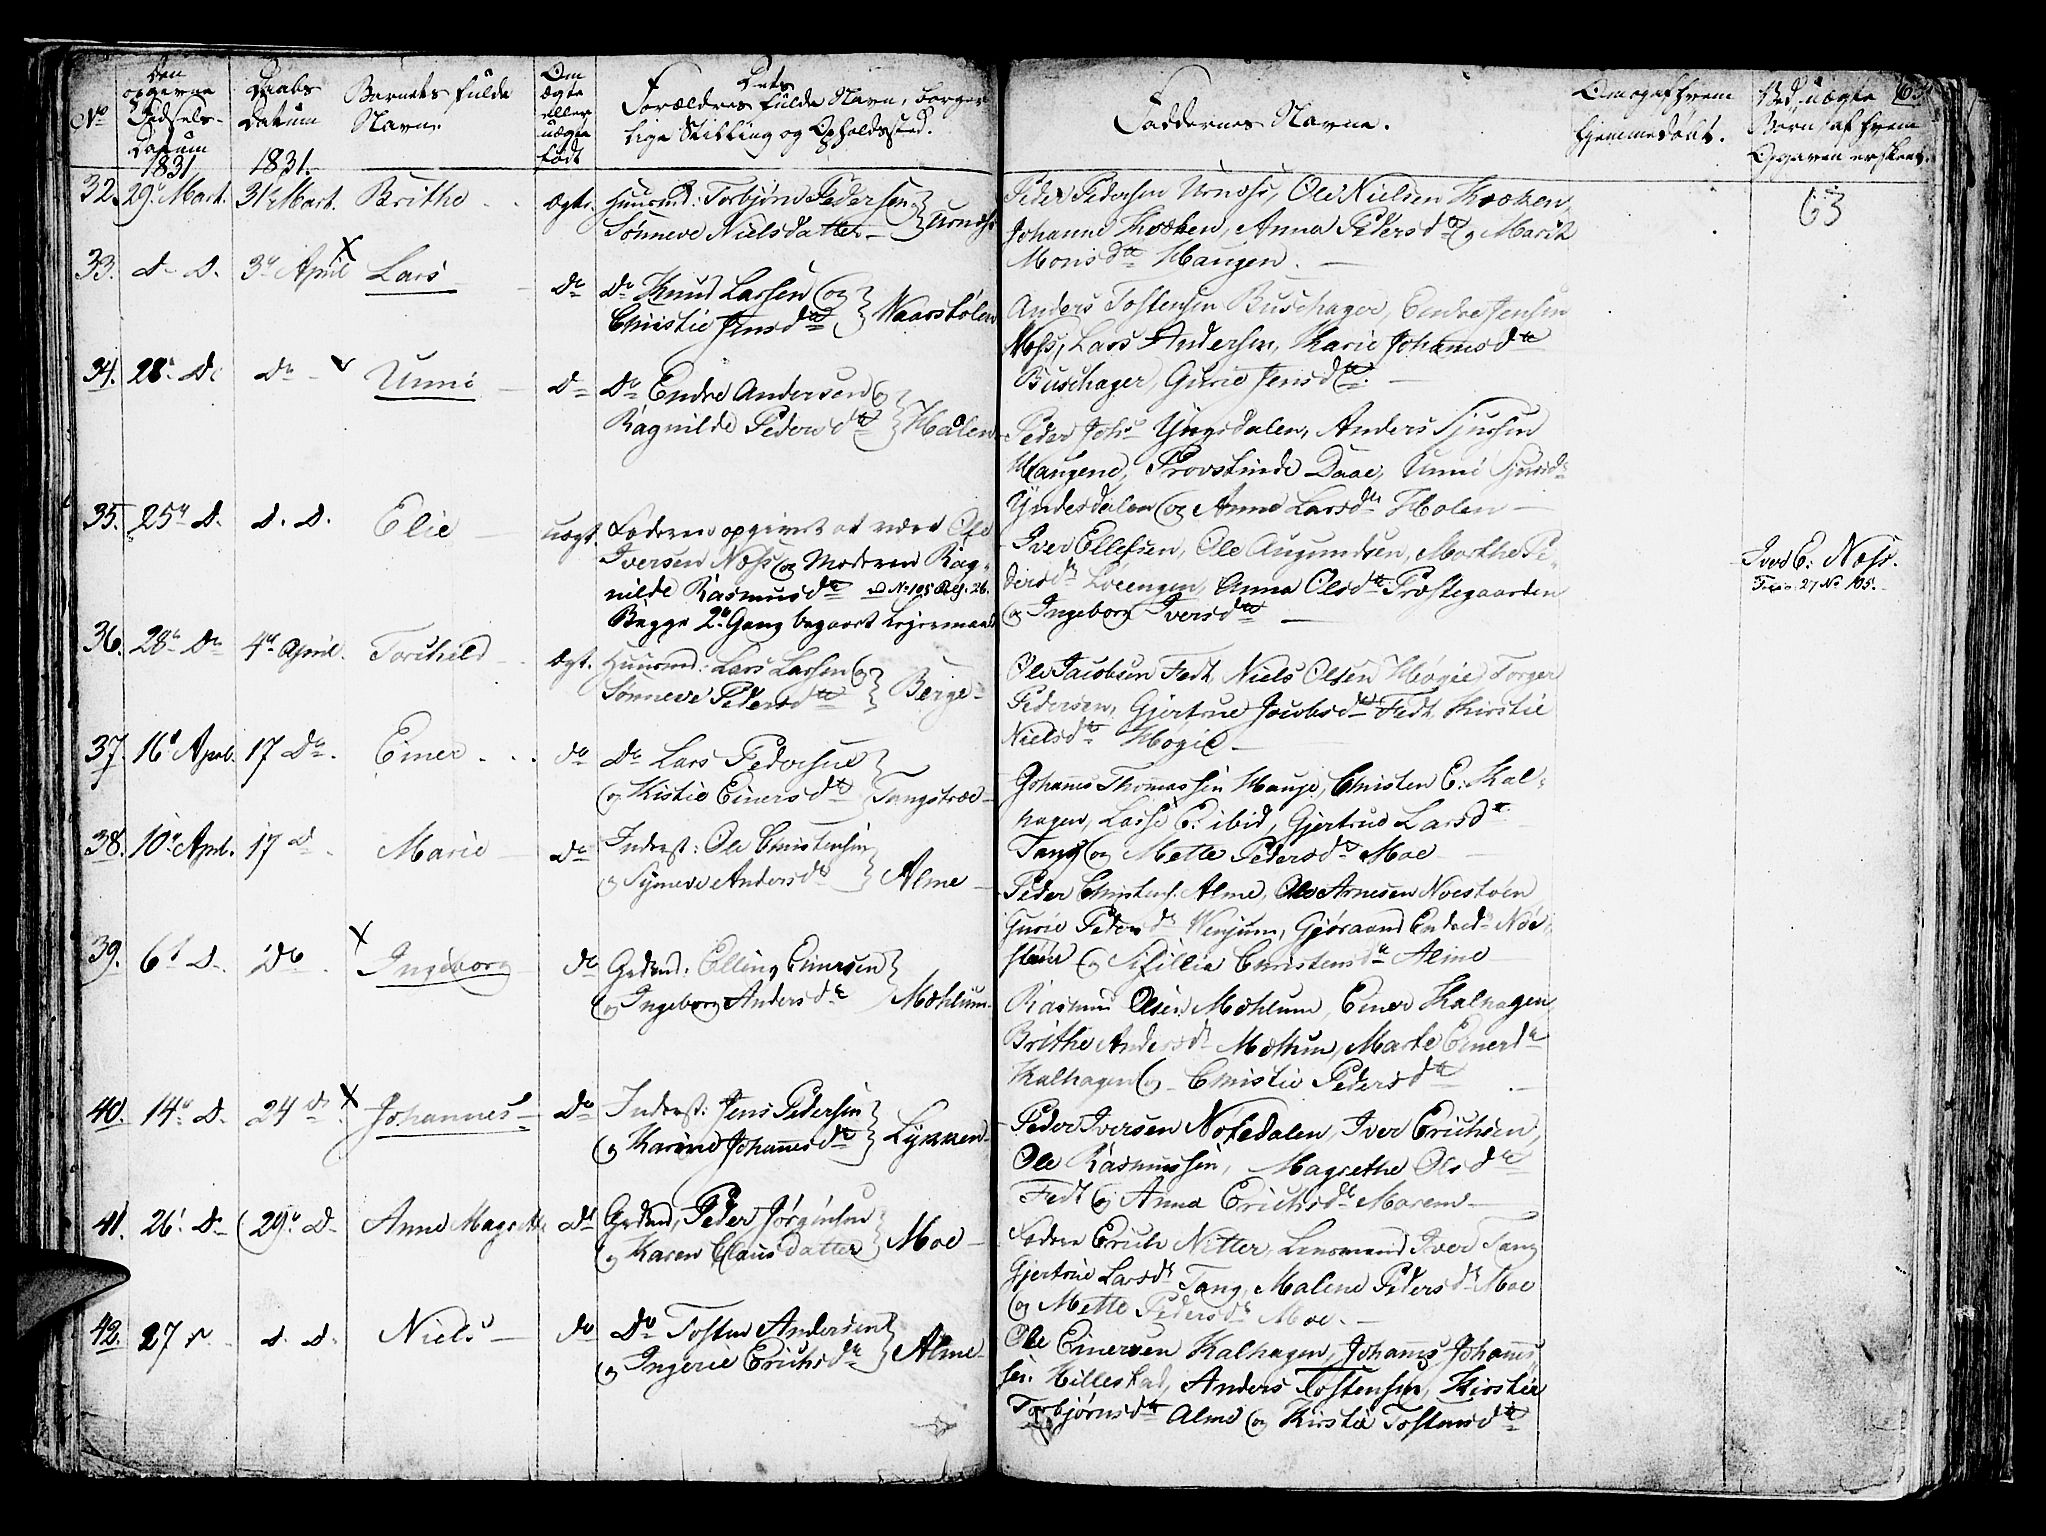 No
Den opgivne Fødsels-Datum
1831
Daabs Datum
1831.
Barnets fulde Navn.
Om ægte eller uægte født
Dets Forældres fulde Navn, borgerlige Stilling og Opholdssted.
Faddernes Navne.
Om og af hvem hjemmedøbt.
Ved uægte Børn, af hvem Opgaven er skeet.
63
32. 29d Mart. 31te Mart. Brithe ægte. Huusmd: Torbjørn Pedersen
Sønneve Nielsdatter Urness
Peder Pedersen Urness, Ole Nielsen Kroken,
Johanne Kroken, Anna Pedersdtr og Marith
Monsdtr Haugen.
33. d. d. 3d April Lars do do Knud Larsen og
Christie Jensdtr
Anders Tostensen Buschager, Endre Jensen
Næss, Lars Andersen, Karie Johansdtr
Buschager, Gurie Jensdtr.
34. 28d d. do Unni do do Endre Andersen og
Ragnilde Pedersdtr
Peder Johs Yngsdalen, Anders Sjursen
Haugene, Provstinde Daae, Unni
Yndesdalen og Anne Larsdtr Holen
35. 25d d. d. d. Elie uægt. Faderen opgivet at være Ole
Iversen Næss og Moderen Rag-
nilde Rasmusdtr
Begge 2d Gang begaaet Leiermaal
Iver Ellefsen, Ole Augundsen, Marthe Pe-
dersdtr Løeengen, Anna Olsdtr Prestegaarden
og Ingeborg Iversdtr
Iver E. Næss.
36. 28d do 4d April. Torchild ægt. Huusmd: Lars Larsen og
Sønneve Pedersdtr Berge
Ole Jacobsen Fedt, Niels Olsen Høgie, Torger
Pedersen, Gjertrue Jacobsdtr Fedt, Kirstie
Nielsdtr Høgie
37. 16d April. 17 do. Einer do do Lars Pedersen
og Kistie Einersdtr
Johannes Thomassen Hauge, Christen E. Kal-
hagen, Lasse E. ibid, Gjertrue Larsdtr
Tang og Mette Pedersdtr Moe
38. 10d April. 17 d Marie do Inderst: Ole Christensen
og Synneve Andersdtr Alme
Peder Christens. Alme, Ole Arnesen
Gurie Pedersdtr Venjum, Gjøraand Endredtr Nøe-
støen og Sisillia Christensdtr Alme
39. 6d d. do Ingeborg do Grdmd: Elling Einersen
og Ingeborg Andersdtr Mæhlum
Rasmus Olsen Mæhlum, Einer Kalhagen,
Brithe Andersdtr Mæhlum, Marte Einersdtr
Kalhagen og Christie Pedersdtr
40. 14d d. 24 d. Johannes do Inderst: Jens Pedersen
og Karine Johannesdtr Lykken
Peder Iversen Nøsedalen, Iver Erichsen,
Ole Rasmussen, Magrethe Olsdtr
Fedt og Anna Erichsdtr Marem
41. 26d d. 29d d. Anne Magrethe do Grdmd, Peder Jørgensen
og Karen Clausdatter Moe
Fadere Erich Nitter, Lensmand Iver Tang
Gjertrue Larsdtr Tang, Malene Pedersdtr Moe
og Mette Pedersdtr Moe.
42. 27 d. d. Niels do do Tosten Andersen
og Ingerie Erichsdtr Alme
Ole Einersen Kalhagen, Johannes Johannes-
sen Hillestad, Anders Tostensen, Kirstie
Torbjørnsdtr Alme og Kirstie Tostensdtr